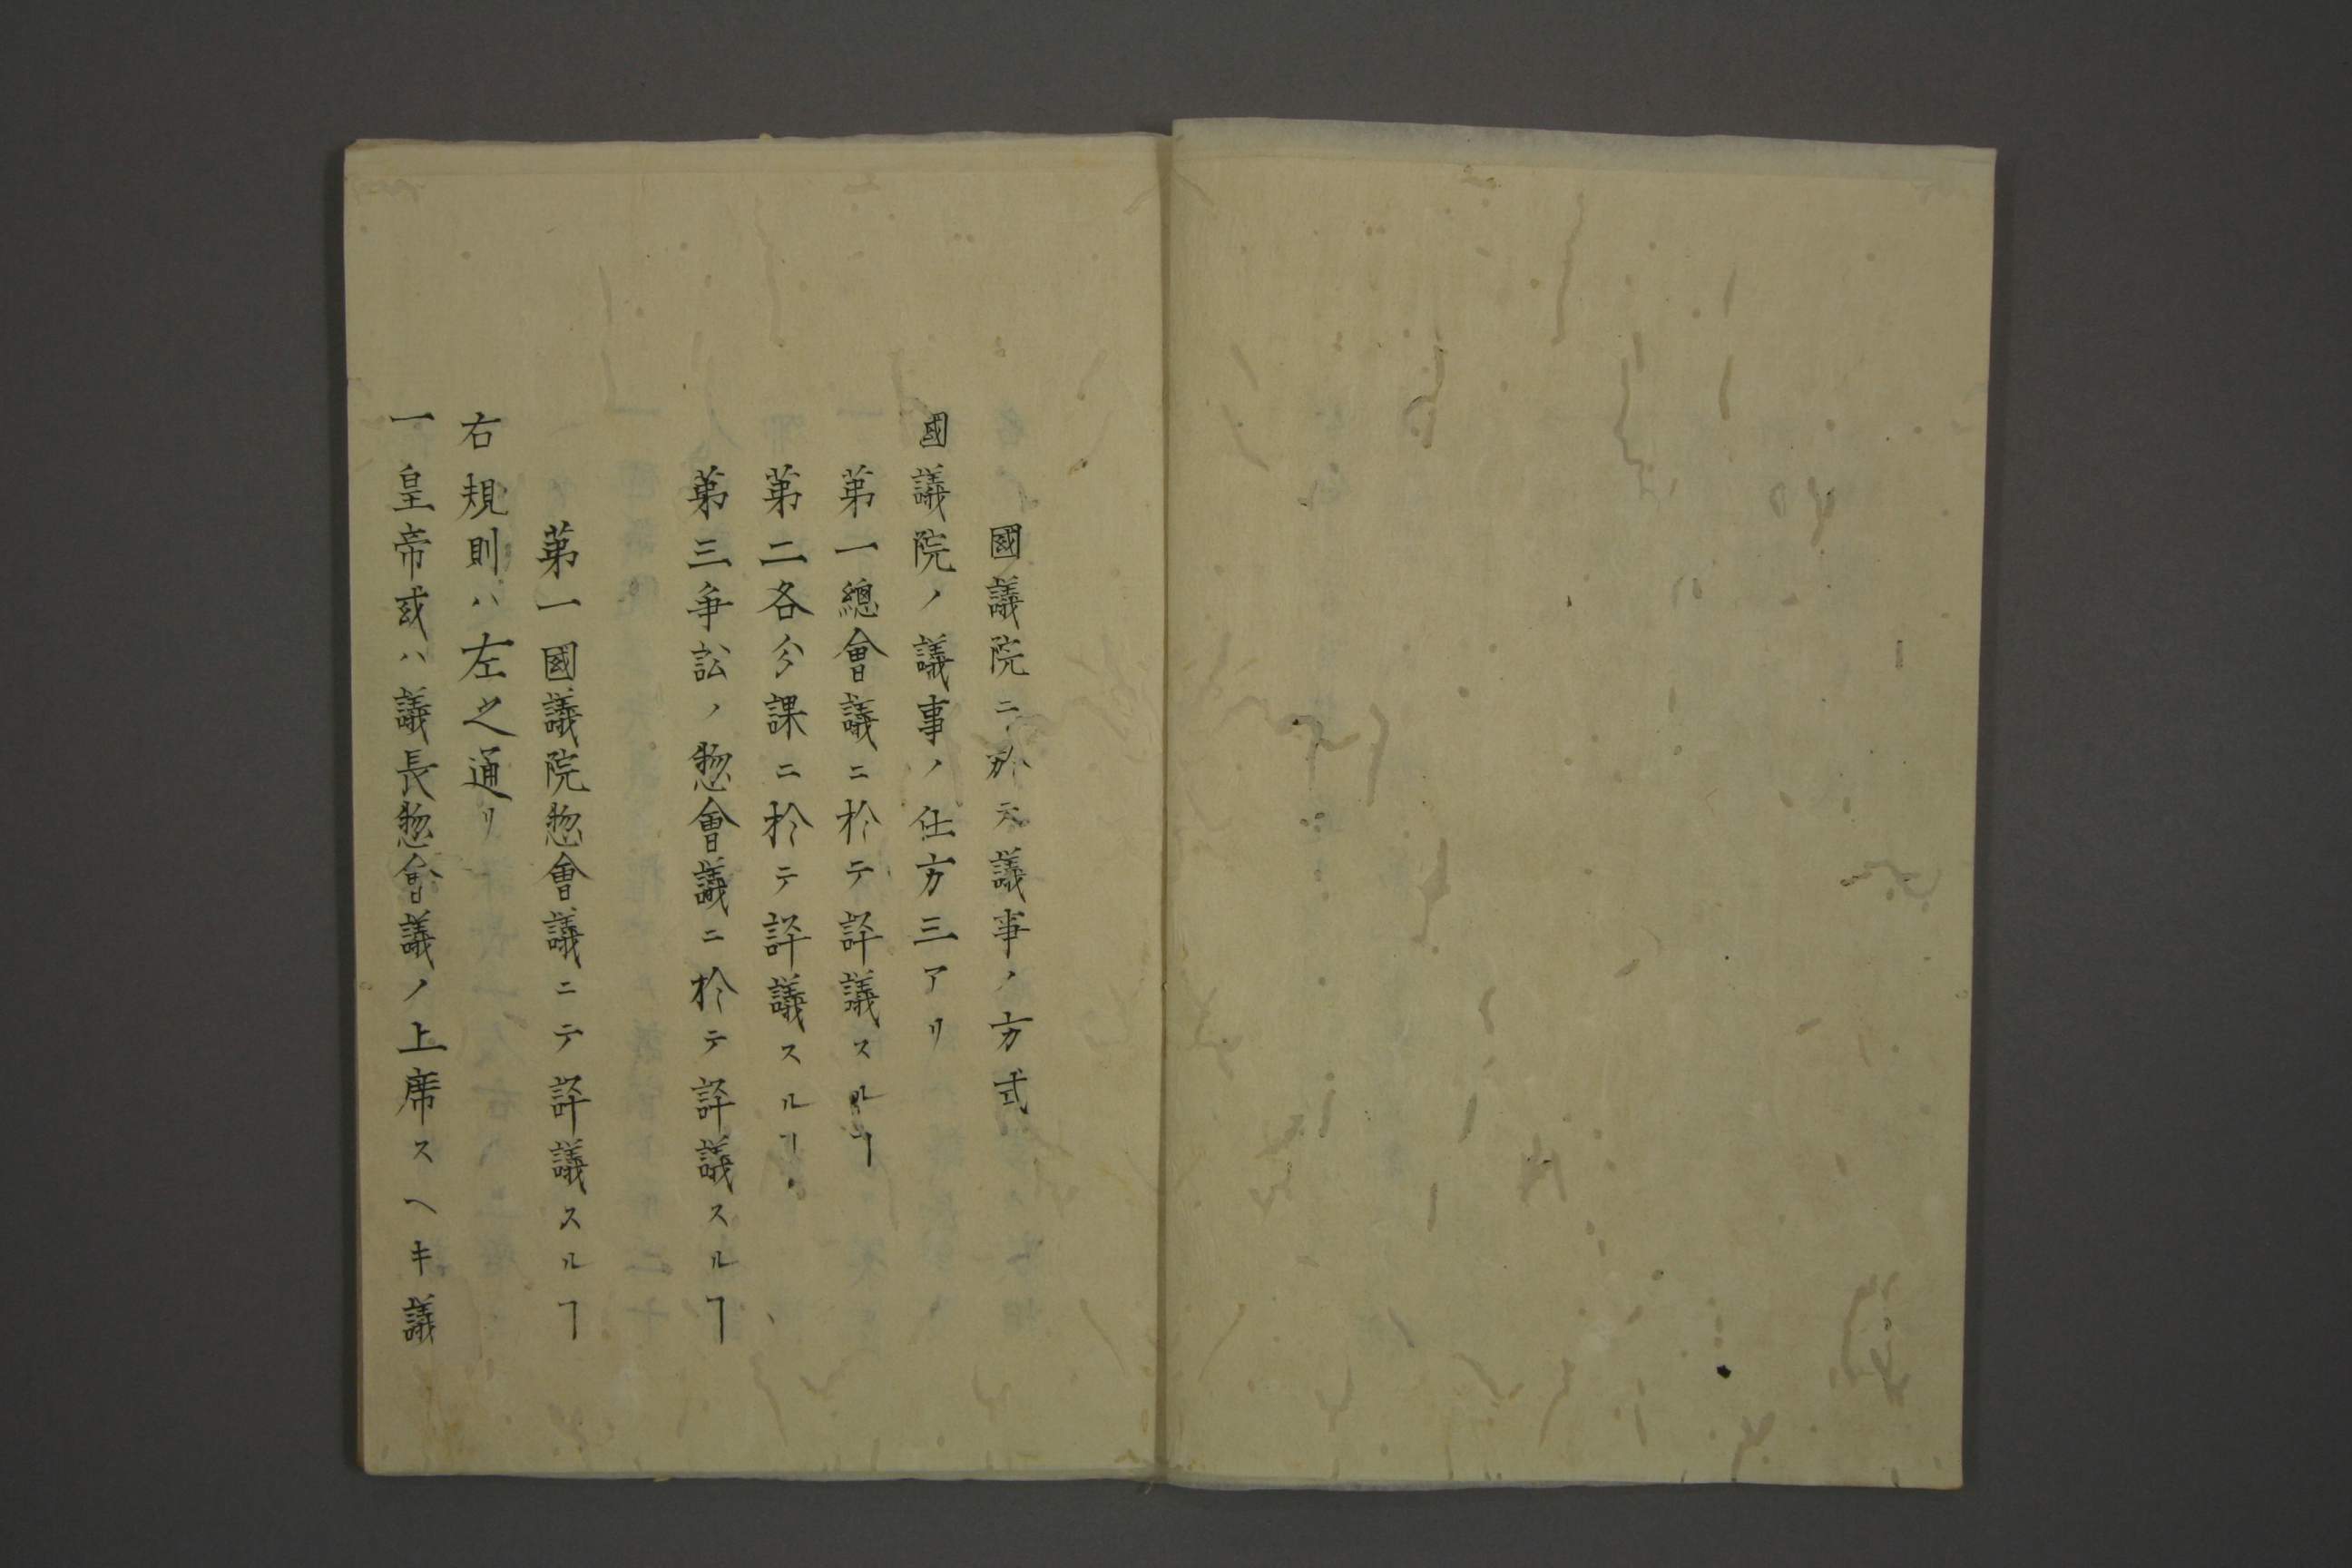 國議院ニ於テ議事ノ方式
國議院ノ議事ノ仕方三アリ
第一總會議ニ於テ評議スルヿ
第二各分課ニ於テ評議スルヿ
第三争訟ノ惣會議ニ於テ評議スルヿ
第一國議院惣會議ニテ評議スルヿ
右規則ハ左之通リ
一皇帝或ハ議長惣會議ノ上席スヘキ議